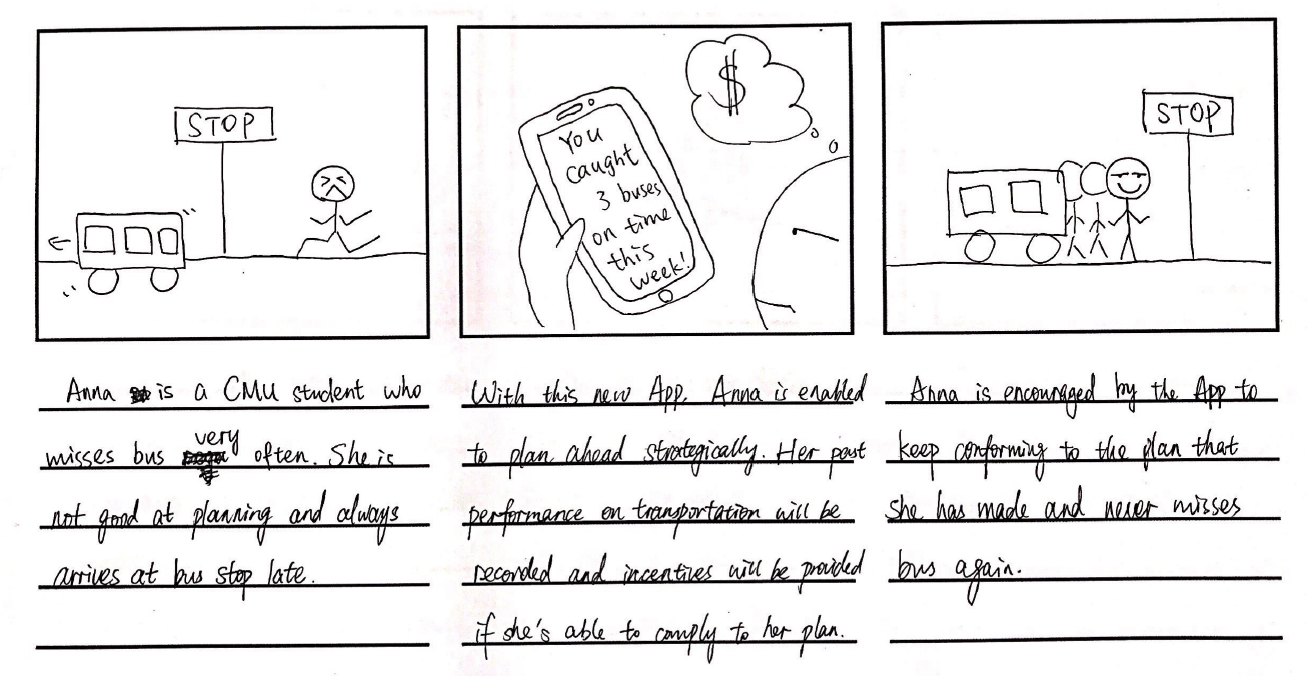 STOP
You
caught
3 buses
on time
this
week!
$
STOP
Anna is a CMU student who
misses bus very often. She is
not good at planning and always
arrives at bus stop late.
With this new App, Anna is enabled
to plan ahead strategically. Her past
performance on transportation will be
recorded and incentives will be provided
if she's able to comply to her plan.
Anna is encouraged by the App to
keep conforming to the plan that
she has made and never misses
bus again.